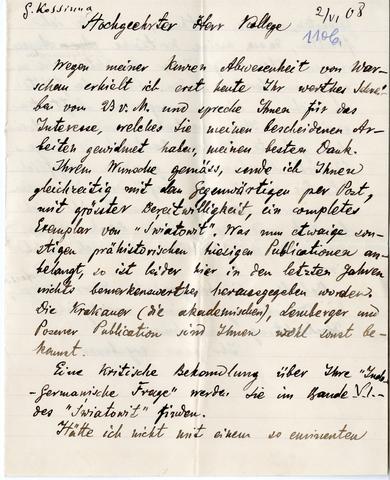 G. Kossinna
2/VI 08
110b.
Hochgeehrter Herr Kollege
Wegen meiner kurzen Abwesenheit von War-
schau erhielt ich erst heute Ihr werthes Schrei-
ben vom 23 v. M. und spreche Ihnen für das
Interesse, welches Sie meinen bescheidenen Ar-
beiten gewidmet haben, meinen besten Dank.
Ihrem Wunsche gemäss, sende ich Ihnen
gleichzeitig mit dem Gegenwärtigen per Post,
mit grösster Bereitwilligkeit, ein completes
Exemplar von "Swiatowit". Was nun etwaige son-
stigen prähistorischen hiesigen Publicationen an-
belangt, so ist leider hier in den letzten Jahren
nichts bemerkenswerthes herausgegeben worden.
Die Krakauer (die akademischen), Lemberger und
Posener Publication sind Ihnen wohl sonst be-
kannt.
Eine Kritische Behandlung über Ihre "Indo-
-Germanische Frage" werden Sie im Bande VI.-
des "Swiatowit" finden.
Hätte ich nicht mit einem so eminenten